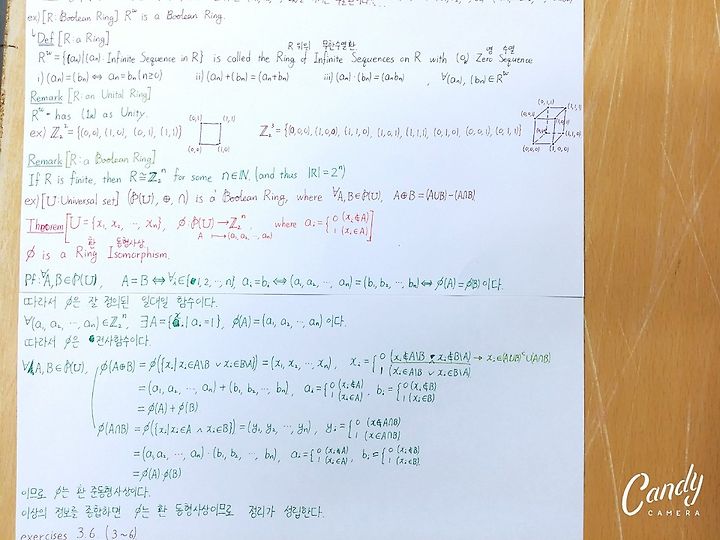 ex) [R: Boolean Ring] R^w is a Boolean Ring.
Def [R: a Ring]
R 위의 무한수열환 영 수열
R^w = {(an) | (an): Infinite Sequence in R} is called the Ring of Infinite Sequences on R with (0) Zero Sequence
i) (an)=(bn) ⇔ an=bn (n≥0) ii) (an)+(bn)=(an+bn) iii) (an)·(bn)=(anbn), ∀(an), (bn)∈R^w
Remark [R: an Unital Ring]
R^w has (1R) as Unity.
ex) Z₂²={(0,0), (1,0), (0,1), (1,1)} (0,1) (1,1) (0,0) (1,0) Z₂³={(0,0,0), (1,0,0), (1,1,0), (1,0,1), (1,1,1), (0,1,0), (0,0,1), (0,1,1)}
Remark [R: a Boolean Ring]
If R is finite, then R≅Z₂ⁿ for some n∈N. (and thus |R|=2ⁿ)
ex) [U: Universal set] (P(U), ⊕, ∩) is a Boolean Ring, where ∀A,B∈P(U), A⊕B=(A∪B)-(A∩B)
Theorem [U={x₁, x₂, ⋯, xn}, ø: P(U)→Z₂ⁿ, where aᵢ={0 (xᵢ∉A) 1 (xᵢ∈A)]
A ↦ (a₁, a₂, ⋯, an)
환 동형사상
ø is a Ring Isomorphism.
pf: ∀A,B∈P(U), A=B ⇔ ∀i∈{1, 2, ⋯, n}, aᵢ=bᵢ ⇔ (a₁, a₂, ⋯, an)=(b₁, b₂, ⋯, bn) ⇔ ø(A)=ø(B)이다.
따라서 ø은 잘 정의된 일대일 함수이다.
∀(a₁, a₂, ⋯, an)∈Z₂ⁿ, ∃A={xᵢ | aᵢ=1}, ø(A)=(a₁, a₂, ⋯, an) 이다.
따라서 ø은 전사함수이다.
∀A,B∈P(U), ø(A⊕B)=ø({xᵢ | xᵢ∈A\B ∨ xᵢ∈B\A})=(x₁, x₂, ⋯, xn), xᵢ={0 (xᵢ∉A\B xᵢ∉B\A) → xᵢ∈(A∪B)ᶜ∪(A∩B) 1 (xᵢ∈A\B ∨ xᵢ∈B\A)
=(a₁, a₂, ⋯, an)+(b₁, b₂, ⋯, bn), aᵢ={0 (xᵢ∉A) 1 (xᵢ∈A), bᵢ={0 (xᵢ∉B) 1 (xᵢ∈B)
=ø(A)+ø(B)
ø(A∩B)=ø({xᵢ | xᵢ∈A ∧ xᵢ∈B})=(y₁, y₂, ⋯, yn), yᵢ={0 (xᵢ∉A∩B) 1 (xᵢ∈A∩B)
=(a₁, a₂, ⋯, an)·(b₁, b₂, ⋯, bn), aᵢ={0 (xᵢ∉A) 1 (xᵢ∈A), bᵢ={0 (xᵢ∉B) 1 (xᵢ∈B)
=ø(A)·ø(B)
이므로 ø는 환 준동형사상이다.
이상의 정보를 종합하면 ø는 환 동형사상이므로 정리가 성립한다.
exercises 3.6 (3~6)
Candy
CAMERA